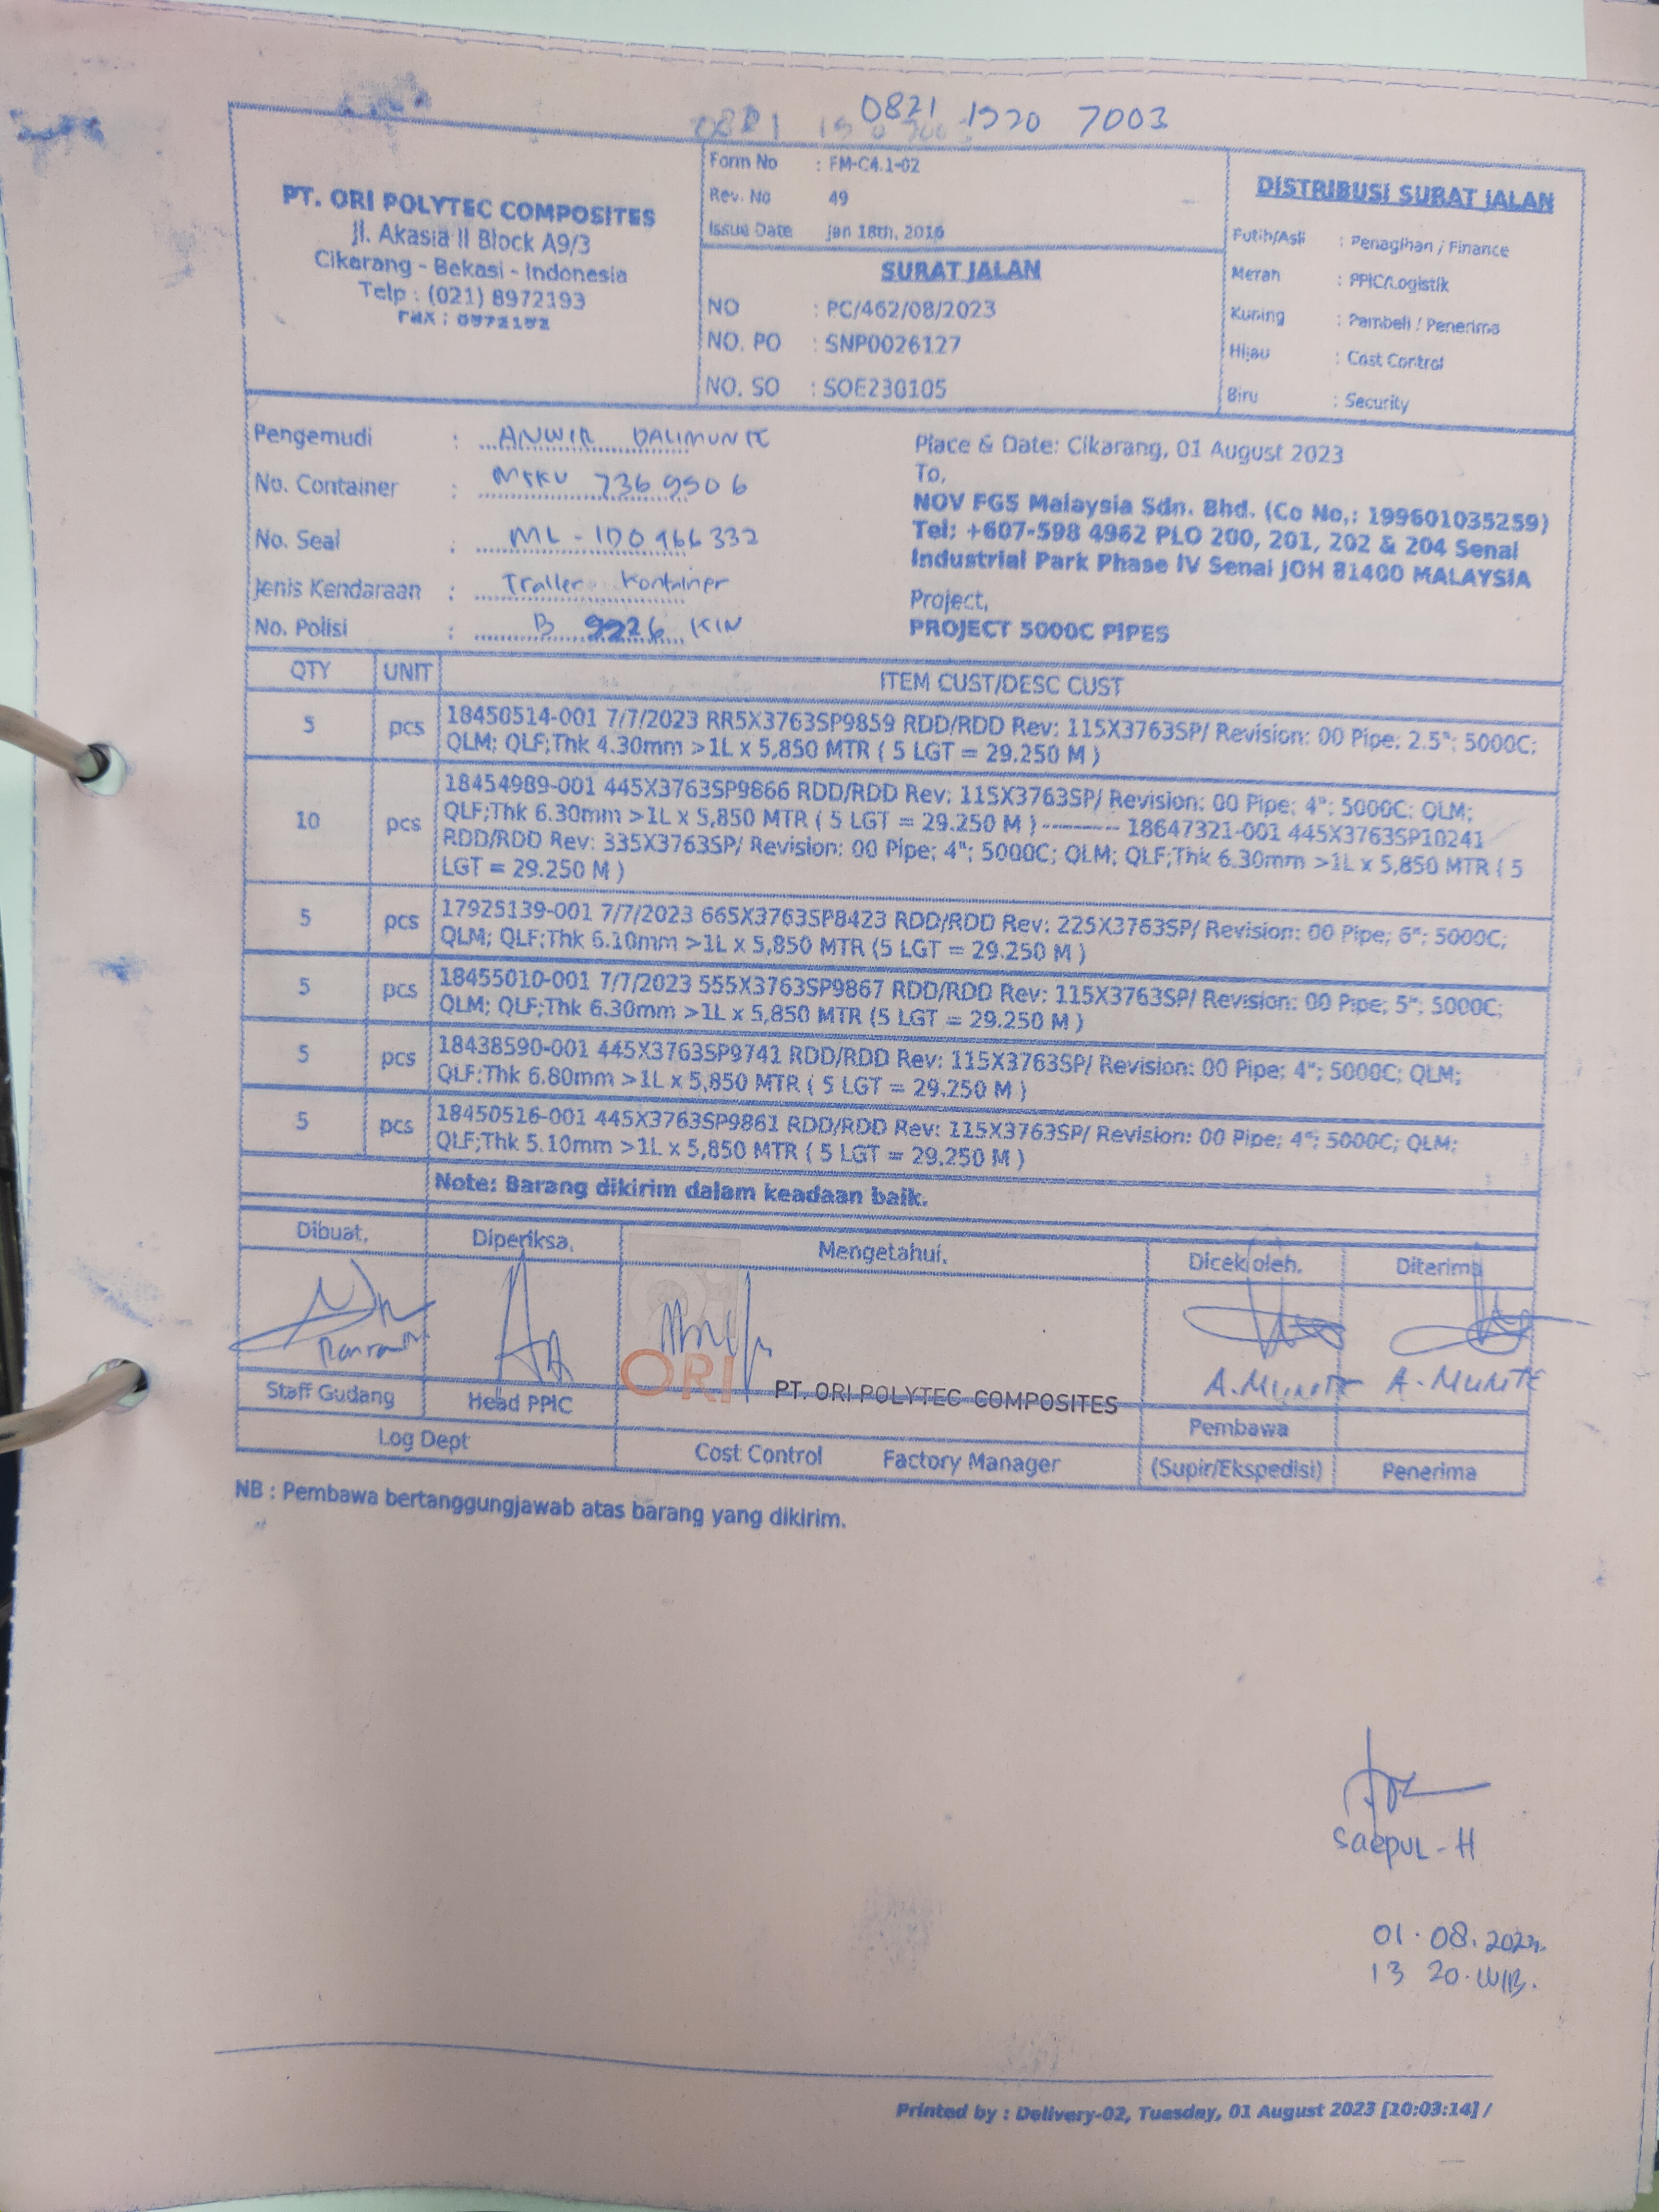 0821 1520 7003
PT. ORI POLYTEC COMPOSITES
Jl. Akasia II Block A9/3
Cikarang - Bekasi - Indonesia
Telp : (021) 8972193
Fax : 8972192
Form No : FM-C4.1-02
Rev. No 49
Issue Date Jan 18th, 2016
SURAT JALAN
NO : PC/462/08/2023
NO. PO : SNP0026127
NO. SO : SOE230105
DISTRIBUSI SURAT JALAN
Putih/Asli : Penagihan / Finance
Merah : PPIC/Logistik
Kuning : Pembeli / Penerima
Hijau : Cost Control
Biru : Security
Pengemudi : ANWIR DALIMUNTE
No. Container : MSKU 7369506
No. Seal : ML - ID0966332
Jenis Kendaraan : Trailer Kontainer
No. Polisi : B 9226 KIN
Place & Date: Cikarang, 01 August 2023
To,
NOV FGS Malaysia Sdn. Bhd. (Co No,: 199601035259)
Tel: +607-598 4962 PLO 200, 201, 202 & 204 Senai
Industrial Park Phase IV Senai JOH 81400 MALAYSIA
Project,
PROJECT 5000C PIPES
QTY UNIT ITEM CUST/DESC CUST
5 pcs 18450514-001 7/7/2023 RR5X3763SP9859 RDD/RDD Rev: 115X3763SP/ Revision: 00 Pipe; 2.5"; 5000C;
QLM; QLF;Thk 4.30mm >1L x 5,850 MTR ( 5 LGT = 29.250 M )
10 pcs 18454989-001 445X3763SP9866 RDD/RDD Rev: 115X3763SP/ Revision: 00 Pipe; 4"; 5000C; QLM;
QLF;Thk 6.30mm >1L x 5,850 MTR ( 5 LGT = 29.250 M )-------- 18647321-001 445X3763SP10241
RDD/RDD Rev: 335X3763SP/ Revision: 00 Pipe; 4"; 5000C; QLM; QLF;Thk 6.30mm >1L x 5,850 MTR ( 5
LGT = 29.250 M )
5 pcs 17925139-001 7/7/2023 665X3763SP8423 RDD/RDD Rev: 225X3763SP/ Revision: 00 Pipe; 6"; 5000C;
QLM; QLF;Thk 6.10mm >1L x 5,850 MTR (5 LGT = 29.250 M )
5 pcs 18455010-001 7/7/2023 555X3763SP9867 RDD/RDD Rev: 115X3763SP/ Revision: 00 Pipe; 5"; 5000C;
QLM; QLF;Thk 6.30mm >1L x 5,850 MTR (5 LGT = 29.250 M )
5 pcs 18438590-001 445X3763SP9741 RDD/RDD Rev: 115X3763SP/ Revision: 00 Pipe; 4"; 5000C; QLM;
QLF;Thk 6.80mm >1L x 5,850 MTR ( 5 LGT = 29.250 M )
5 pcs 18450516-001 445X3763SP9861 RDD/RDD Rev: 115X3763SP/ Revision: 00 Pipe; 4"; 5000C; QLM;
QLF;Thk 5.10mm >1L x 5,850 MTR ( 5 LGT = 29.250 M )
Note: Barang dikirim dalam keadaan baik.
Dibuat, Diperiksa, Mengetahui, Dicek oleh, Diterima
ORI PT. ORI POLYTEC COMPOSITES
A.MUNTE A.MUNTE
Staff Gudang Head PPIC Pembawa
Log Dept Cost Control Factory Manager (Supir/Ekspedisi) Penerima
NB : Pembawa bertanggungjawab atas barang yang dikirim.
Saepul - H
01.08.2023.
13 20.WIB.
Printed by : Delivery-02, Tuesday, 01 August 2023 [10:03:14] /